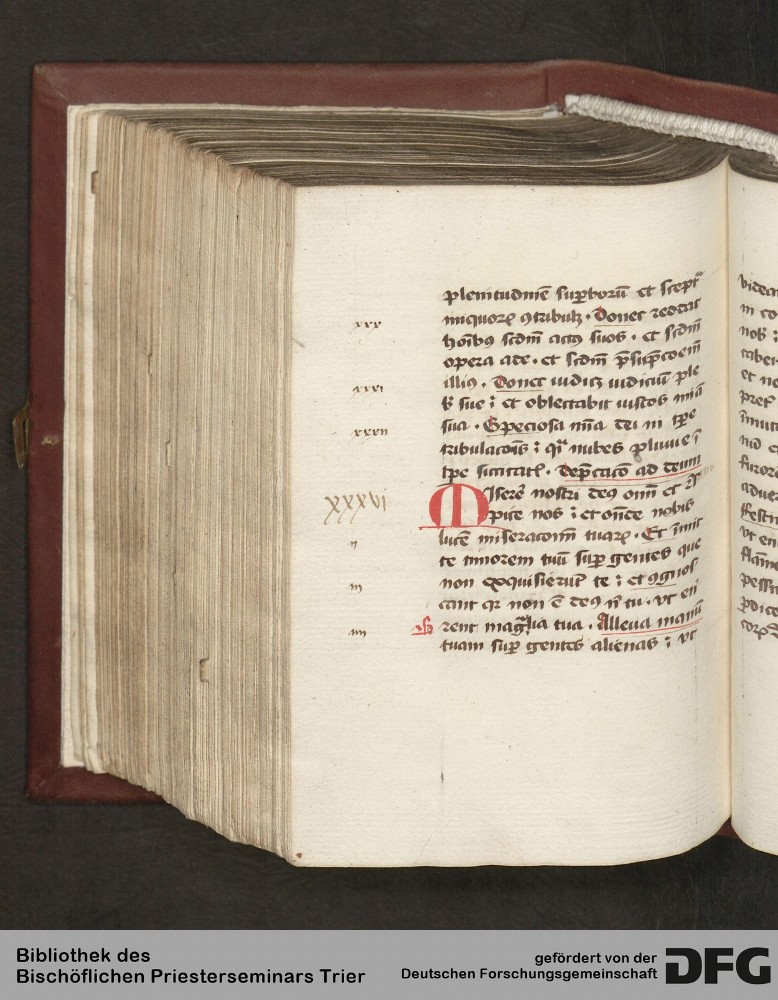 xxx
xxxi
xxxii
XXXVI
ii
iii
iiii
plenitudinē suꝑborū et scept᷑
iniquorꝝ ꝯtribulꝫ · Donec reddat
hoībꝰ scdm̄ actꝰ suos · et scdm̄
opera ade · et scdm̄ p̄sūpcoem̄
illiꝰ · Donec iudicꝫ iudiciū ple
b̄ sue : et oblectabit iustos mīa
sua · Speciosa mīa dei in tpe
tribulacōis : qͥ nubes pluuie ī
tpe siccitatꝭ · Dep̄cacō ad deum
Miserē nostri deꝰ oīm et
spice nos : et oñde nobis
lucē miseracionū tuarꝝ · Et īmit
te timorem tuū suꝑ gentes que
non exquisierūt te : et ꝯgnos
cant qꝛ non ē deꝰ nͥ tu · vt en̄
rent mag̃lia tua · Alleua manū
tuam suꝑ gentes alienas : vt
videan
in co
nobꝭ
et ne
Bibliothek des
Bischöflichen Priesterseminars Trier
gefördert von der
Deutschen Forschungsgemeinschaft
DFG